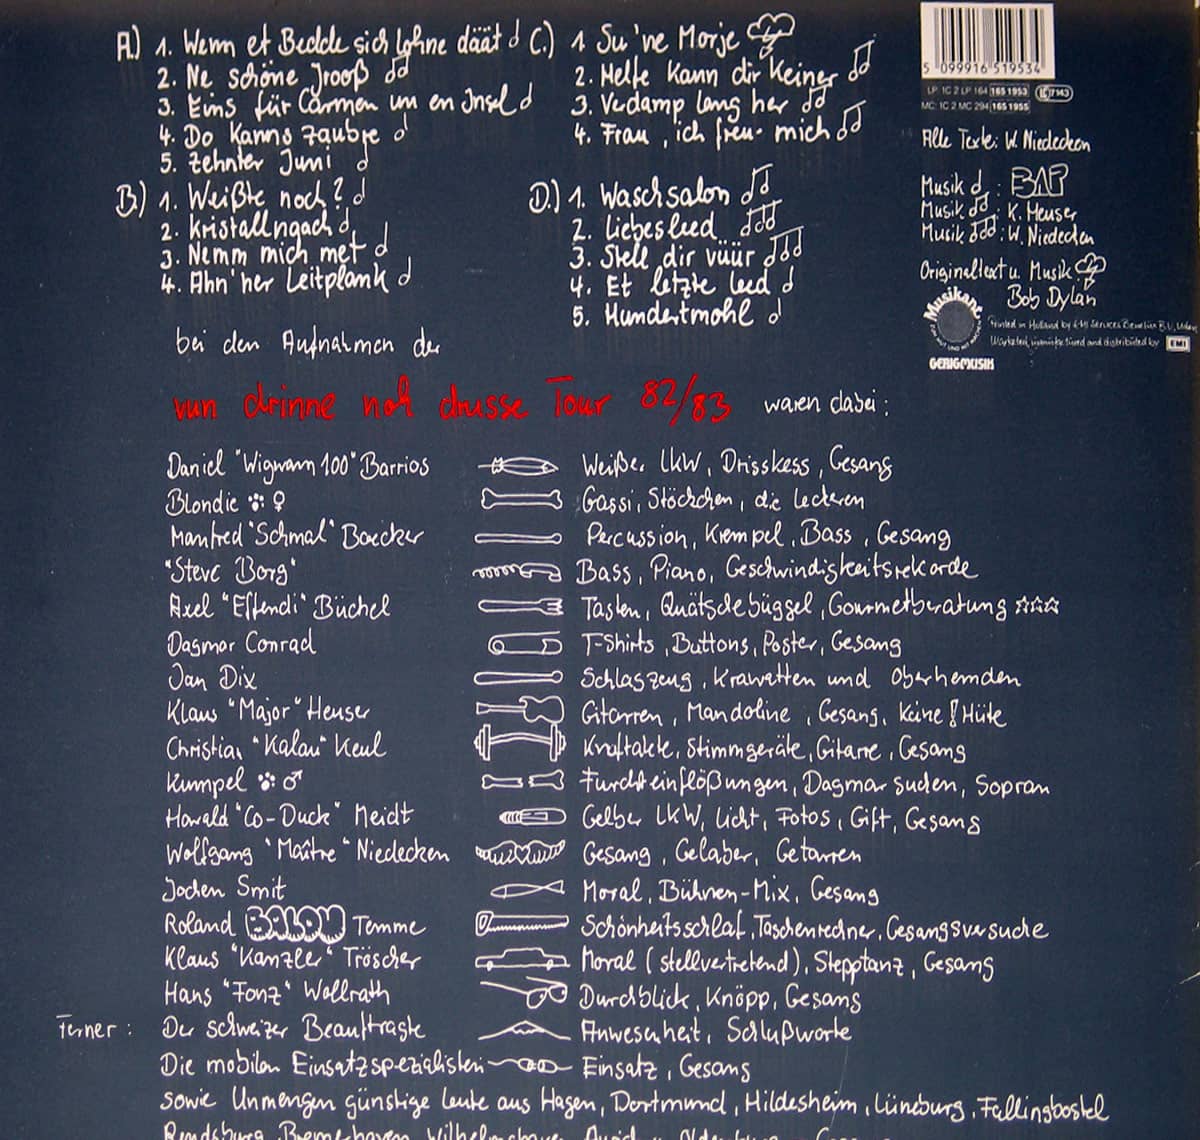 A.) 1. Wenn et Bedde sich lohne däät ♪
2. Ne schöne Jrooß ♫
3. Eins für Carmen un en Insel ♪
4. Do kanns zaubre ♪
5. Zehnter Juni ♪
B.) 1. Weißte noch? ♪
2. Kristallnaach ♪
3. Nemm mich met ♪
4. Ahn 'ner Leitplank ♪
C.) 1 Su 'ne Morje
2. Helfe kann dir keiner ♫
3. Verdamp lang her ♫
4. Frau, ich freu mich ♫
D.) 1. Waschsalon ♫
2. Liebesleed
3. Stell dir vüür
4. Et letzte Leed ♪
5. Hundertmohl ♪
5 099916 519534
LP: 1C 2 LP 164 165 1953
MC: 1C 2 MC 294 165 1955
Alle Texte: W. Niedecken
Musik ♪: BAP
Musik ♫: K. Heuser
Musik: W. Niedecken
Originaltext u. Musik
Bob Dylan
Musikant
GERIGMUSIK
Printed in Holland by EMI Services Benelux B.V.
Marketed, manufactured and distributed by EMI
bei den Aufnahmen der
vun drinne noh drusse Tour 82/83 waren dabei:
Daniel "Wigwam 100" Barrios Weißer LKW, Drisskess, Gesang
Blondie ♀ Gassi, Stöckchen, die Leckeren
Manfred "Schmal" Boecker Percussion, Krempel, Bass, Gesang
"Steve Borg" Bass, Piano, Geschwindigkeitsrekorde
Axel "Effendi" Büchel Tasten, Quätschebüggel, Gourmetberatung ☆☆☆
Dagmar Conrad T-Shirts, Buttons, Poster, Gesang
Jan Dix Schlagzeug, Krawatten und Oberhemden
Klaus "Major" Heuser Gitarren, Mandoline, Gesang, keine! Hüte
Christian "Kalau" Keul Kraftakte, Stimmgeräte, Gitarre, Gesang
Kumpel ♂ Furchteinflößungen, Dagmar suchen, Sopran
Harald "Co-Duck" Neidt Gelber LKW, Licht, Fotos, Gift, Gesang
Wolfgang "Maître" Niedecken Gesang, Gelaber, Getarren
Jochen Smit Moral, Bühnen-Mix, Gesang
Roland Temme Schönheitsschlaf, Taschenrechner, Gesangsversuche
Klaus "Kanzler" Tröscher Moral (stellvertretend), Stepptanz, Gesang
Hans "Fonz" Wollrath Durchblick, Knöpp, Gesang
Ferner: Der schweizer Beauftragte Anwesenheit, Schlußworte
Die mobilen Einsatzspezialisten Einsatz, Gesang
sowie Unmengen günstige Leute aus Hagen, Dortmund, Hildesheim, Lüneburg, Fallingbostel
Rendsburg, Bremerhaven, Wilhelmshaven, Aurich